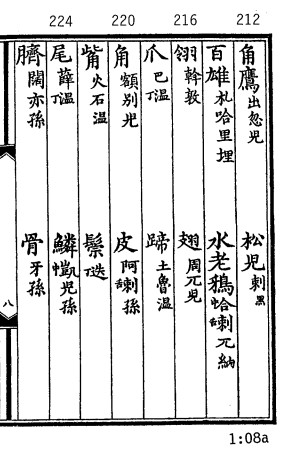 224 220 216 212
角鷹出忽児 松児剌黑
百雄札哈里埋 水老鴉恰喇兀納
翎斡敦 翅周兀児
爪巴丁温 蹄土魯温
角額別児 皮阿喇孫
觜火石温 鬃丁迭
尾薛丁温 鱗愷児孫
臍闊亦孫 骨牙孫
八
1:08a